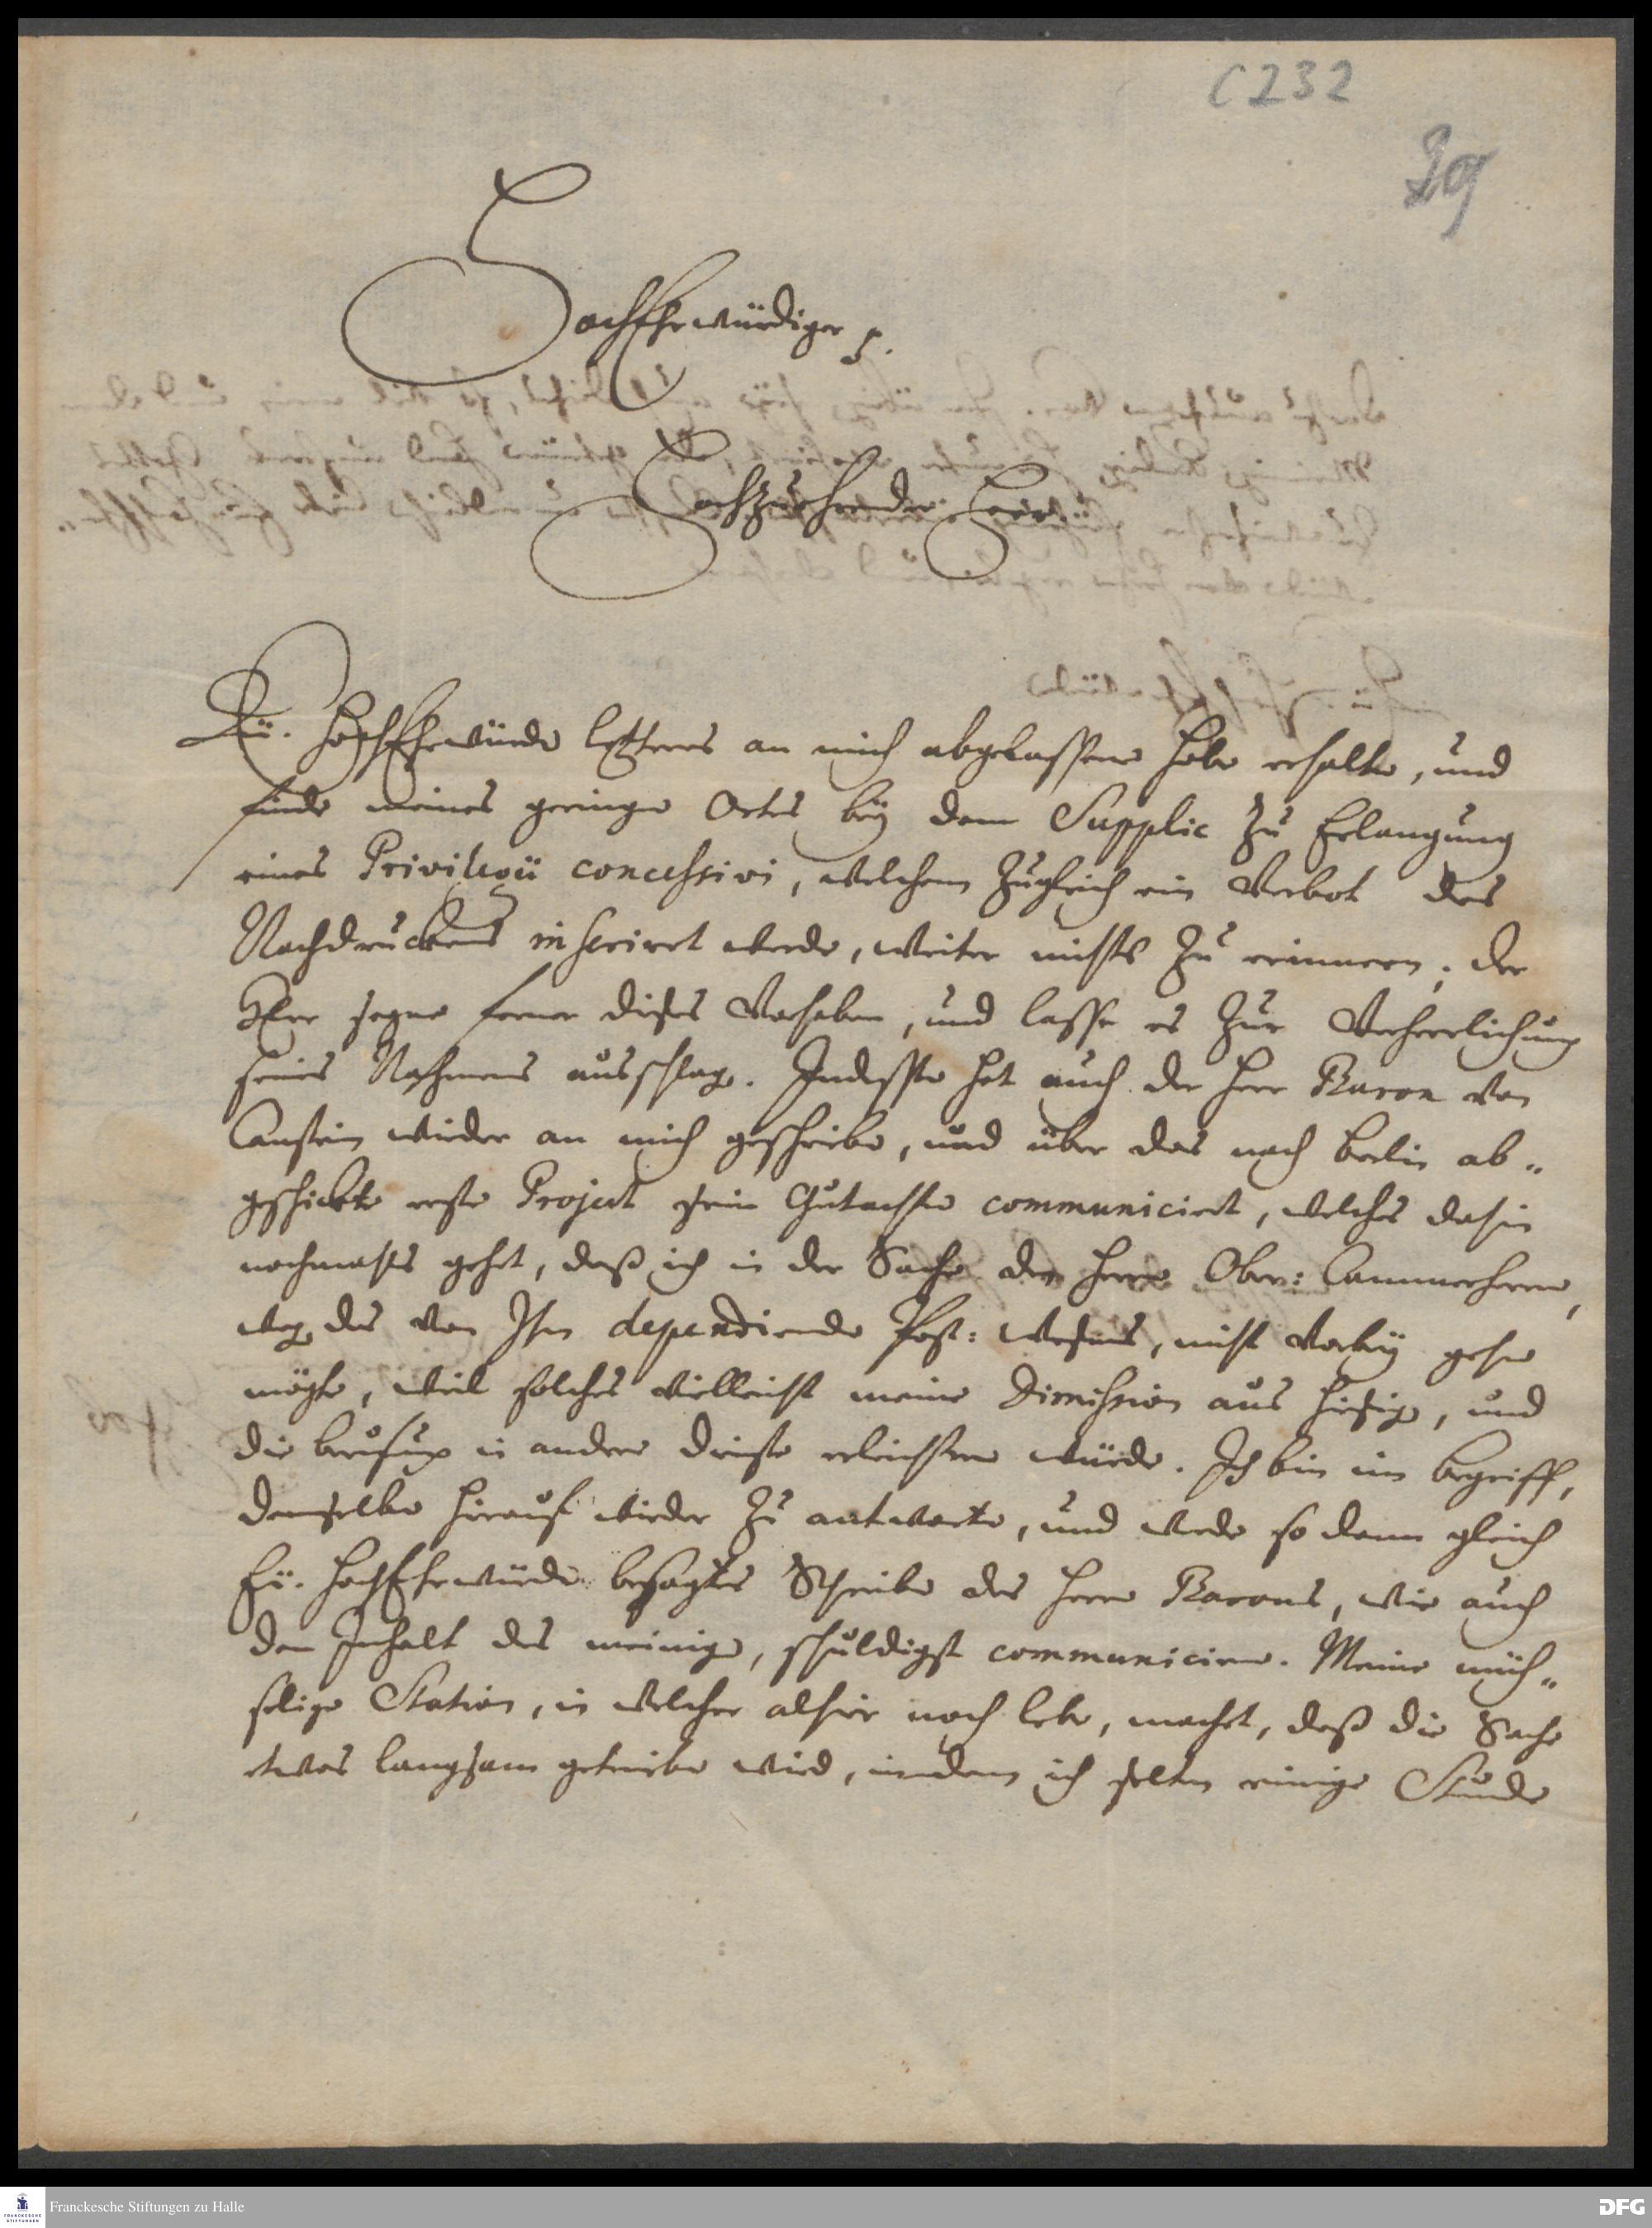 C 232
29
HochEhrwürdiger p.
Hochzuehrender Herr.
Eu. HochEhrwürde letteres an mich abgelassene habe erhalte, und
finde meines geringe Ortes bey dem Supplic zu Erlangung
eines Privilegii concessivi, welchem zugleich ein Verbot des
Nachdruckens inseriret werde, weiter nichts zu erinnern; der
HErr segne ferner dieses Vorhaben, und lasse es zur Verherrlichung
seines Nahmens ausschlage. Indesse hat auch der Herr Baron von
Canstein wieder an mich geschriebe, und über das nach Berlin ab-
geschickte erste Project sein Gutachte communiciret, welches dahin
nochmahls gehet, daß ich in der Sache den Herrn Ober: Cammerherrn,
weg. des von Ihm dependirende Post: Wesens, nicht vorbey gehe
möchte, weil solches vielleicht meine Dimission aus hiesige, und
die beruffung in andere Dienste erleichtern würde. Ich bin im begriff,
demselbe hierauf wieder zu antworte, und werde so dann gleich
Eu. HochEhrwürde besagtes Schreibe des Herrn Barons, wie auch
den Inhalt des meinige, schuldigst communiciren. Meine müh-
selige Station, in welcher alhier noch lebe, machet, daß die Sache
etwas langsam getriebe wird, indem ich selten einige Stunde
Franckesche Stiftungen zu Halle
DFG